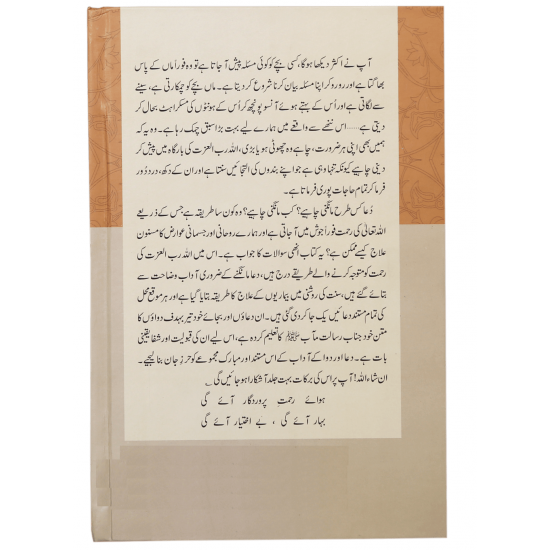 آپ نے اکثر دیکھا ہوگا، کسی بچے کو کوئی مسئلہ پیش آجاتا ہے تو وہ فوراً ماں کے پاس
بھاگتا ہے اور رو رو کر اپنا مسئلہ بیان کرنا شروع کر دیتا ہے۔ ماں بچے کو چمکارتی ہے، سینے
سے لگاتی ہے اور اُس کے بہتے ہوئے آنسو پونچھ کر اُس کے ہونٹوں کی مسکراہٹ بحال کر
دیتی ہے ..... اس ننھے سے واقعے میں ہمارے لیے بہت بڑا سبق چمک رہا ہے۔ وہ یہ کہ
ہمیں بھی اپنی ہر ضرورت، چاہے وہ چھوٹی ہو یا بڑی، اللہ رب العزت کی بارگاہ میں پیش کر
دینی چاہیے کیونکہ تنہا وہی ہے جو اپنے بندوں کی التجائیں سنتا ہے اور ان کے دکھ، درد دُور
فرما کر تمام حاجات پوری فرماتا ہے۔
دُعا کس طرح مانگنی چاہیے؟ کب مانگنی چاہیے؟ وہ کون سا طریقہ ہے جس کے ذریعے
اللہ تعالیٰ کی رحمت فوراً جوش میں آجاتی ہے اور ہمارے روحانی اور جسمانی عوارض کا مسنون
علاج کیسے ممکن ہے؟ یہ کتاب انھی سوالات کا جواب ہے۔ اس میں اللہ رب العزت کی
رحمت کو متوجہ کرنے والے طریقے درج ہیں، دعا مانگنے کے ضروری آداب وضاحت سے
بتائے گئے ہیں، سنت کی روشنی میں بیماریوں کے علاج کا طریقہ بتایا گیا ہے اور ہر موقع محل
کی تمام مستند دعائیں یک جا کر دی گئی ہیں۔ ان دعاؤں اور بجائے خود تیر بہدف دواؤں کا
متن خود جناب رسالت مآب ﷺ کا تعلیم کردہ ہے، اس لیے ان کی قبولیت اور شفا یقینی
بات ہے۔ دعا اور دوا کے آداب کے اس مستند اور مبارک مجموعے کو حرزِ جان بنا لیجیے۔
ان شاء اللہ! آپ پر اس کی برکات بہت جلد آشکارا ہو جائیں گی ؎
ہوائے رحمتِ پروردگار آئے گی
بہار آئے گی ، بے اختیار آئے گی